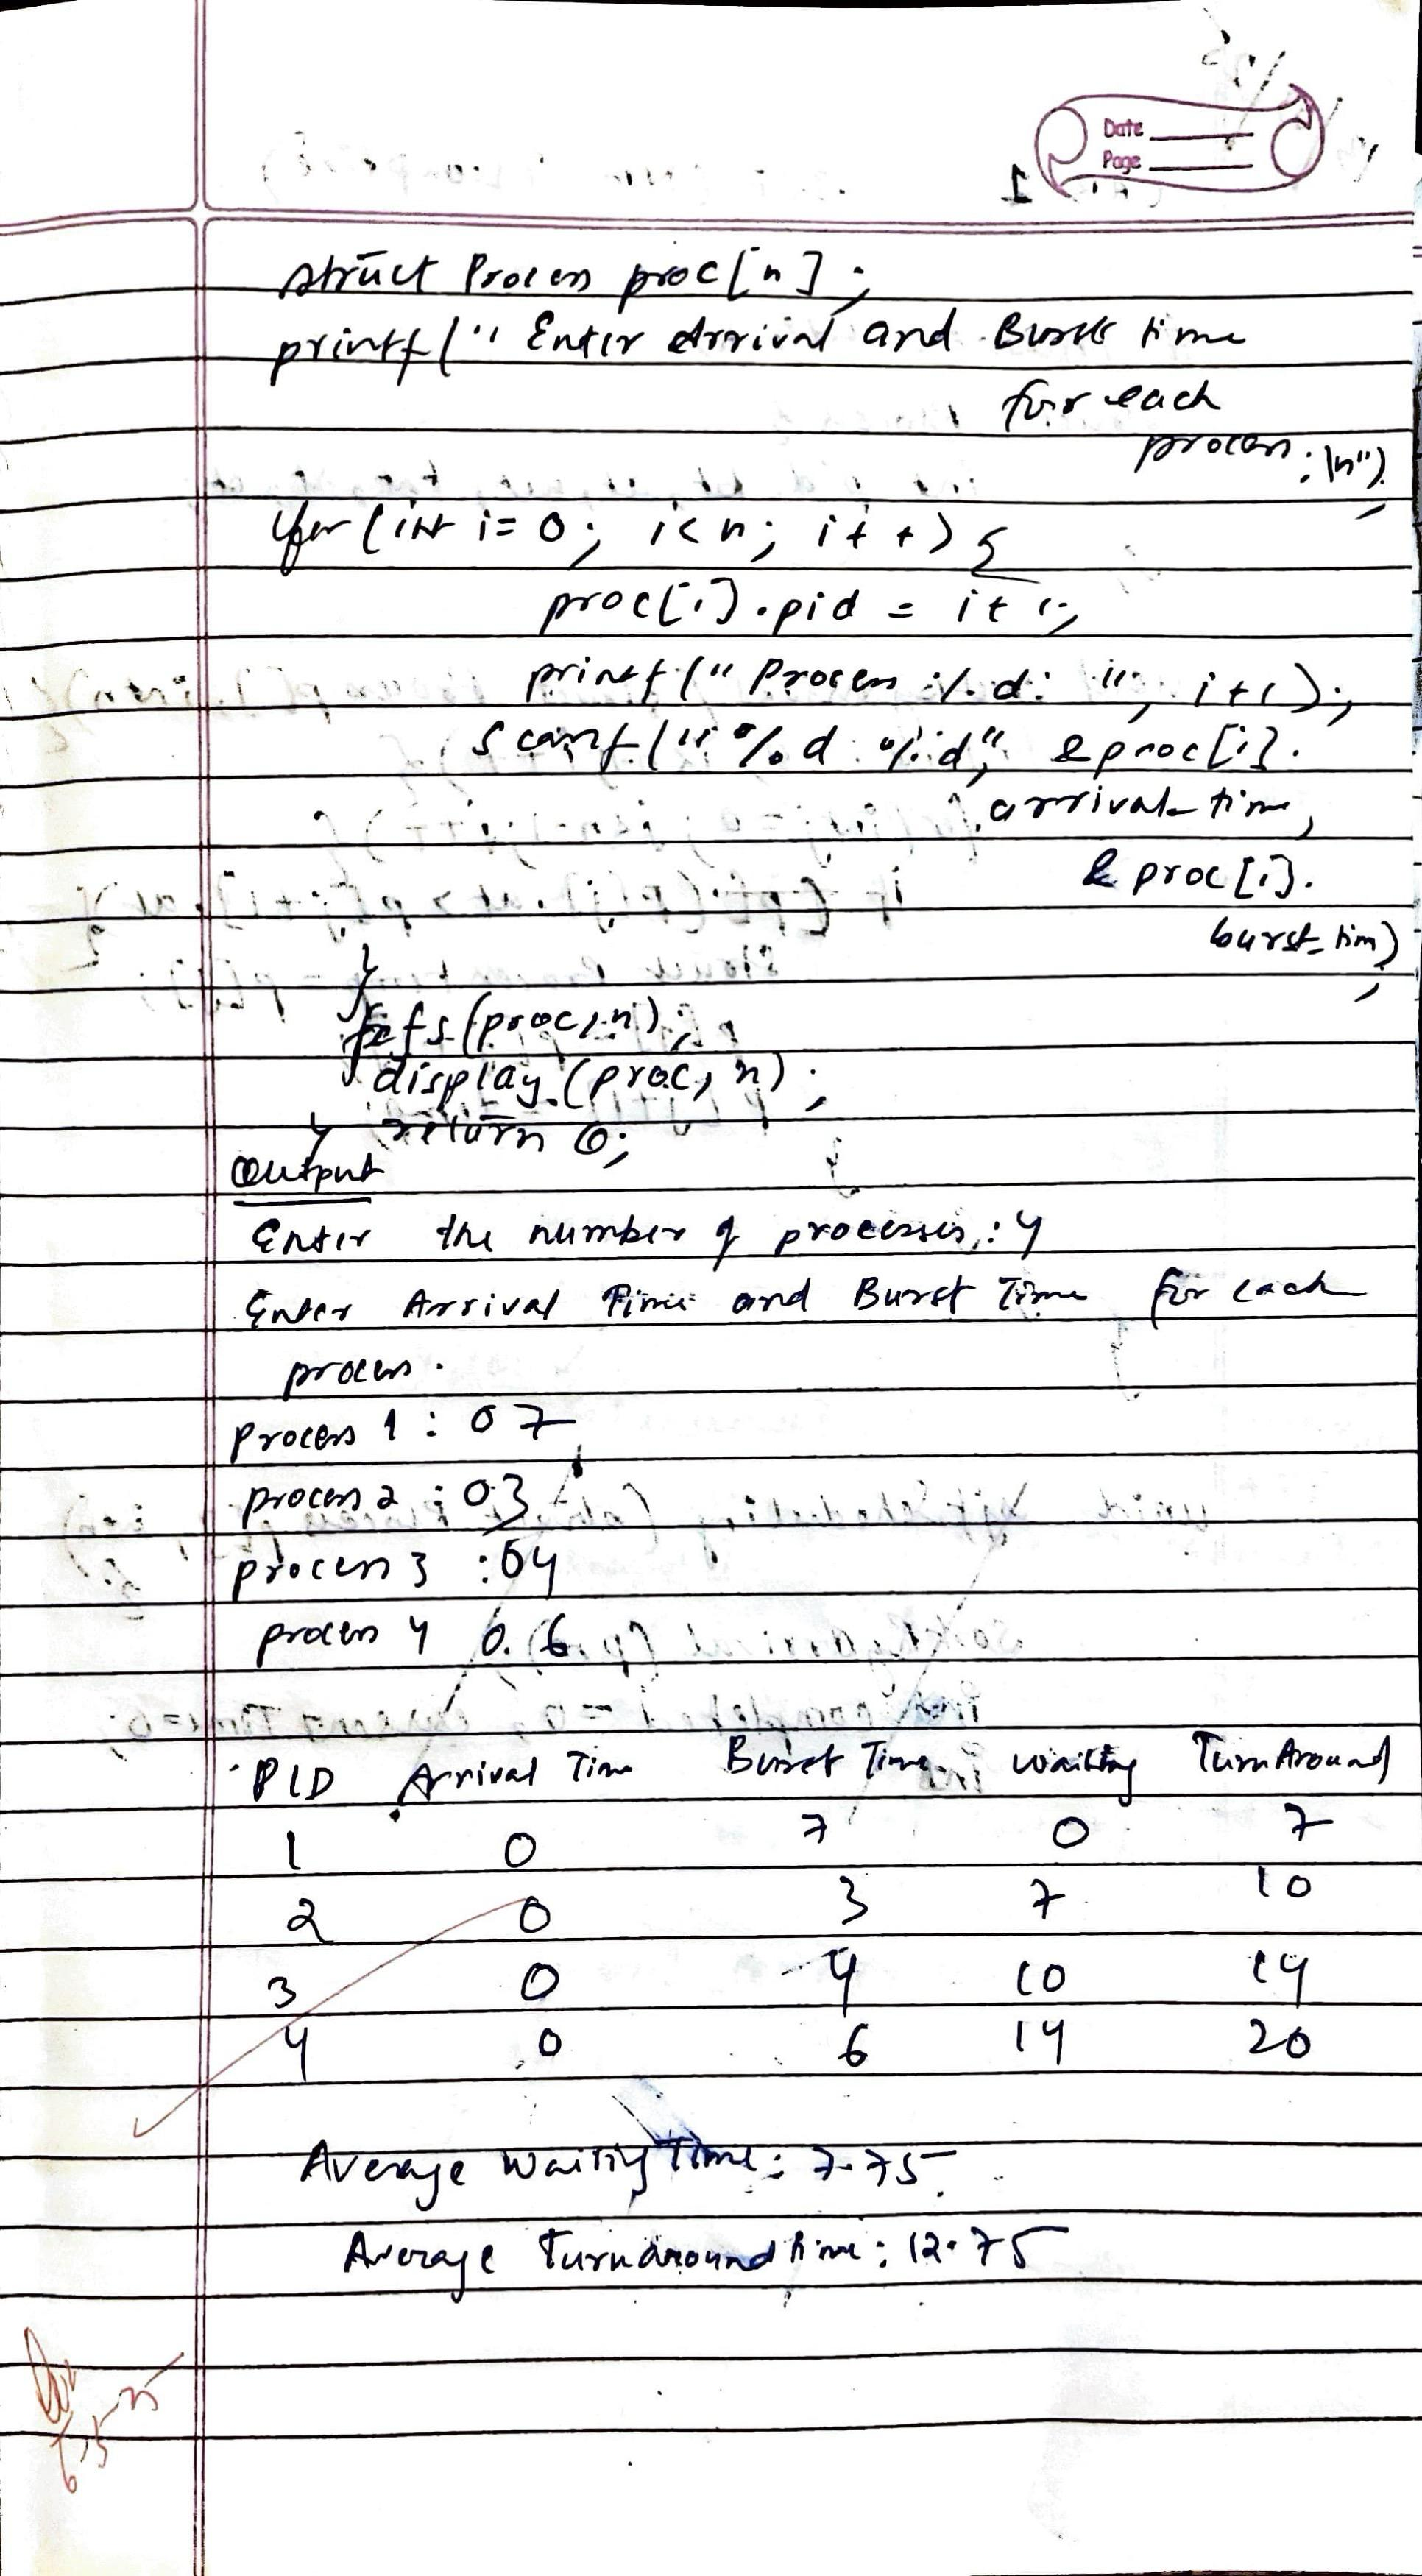 Date
Page
struct Process proc[n];
printf("Enter Arrival and Burst time
for each
process:\n");
for(int i=0; i<n; i++){
proc[i].pid = i+1;
printf("Process %d: ", i+1);
scanf("%d %d", &proc[i].
arrival_time,
&proc[i].
burst_tim);
}
fcfs(proc,n);
display(proc, n);
} return 0;
Output
Enter the number of processes: 4
Enter Arrival Time and Burst Time for each
process.
Process 1: 0 7
process 2: 0 3
process 3: 0 4
process 4 0. 6
PID Arrival Time Burst Time waiting TurnAround
1 0 7 0 7
2 0 3 7 10
3 0 4 10 14
4 0 6 14 20
Average Waiting Time: 7.75
Average Turnaround time: 12.75